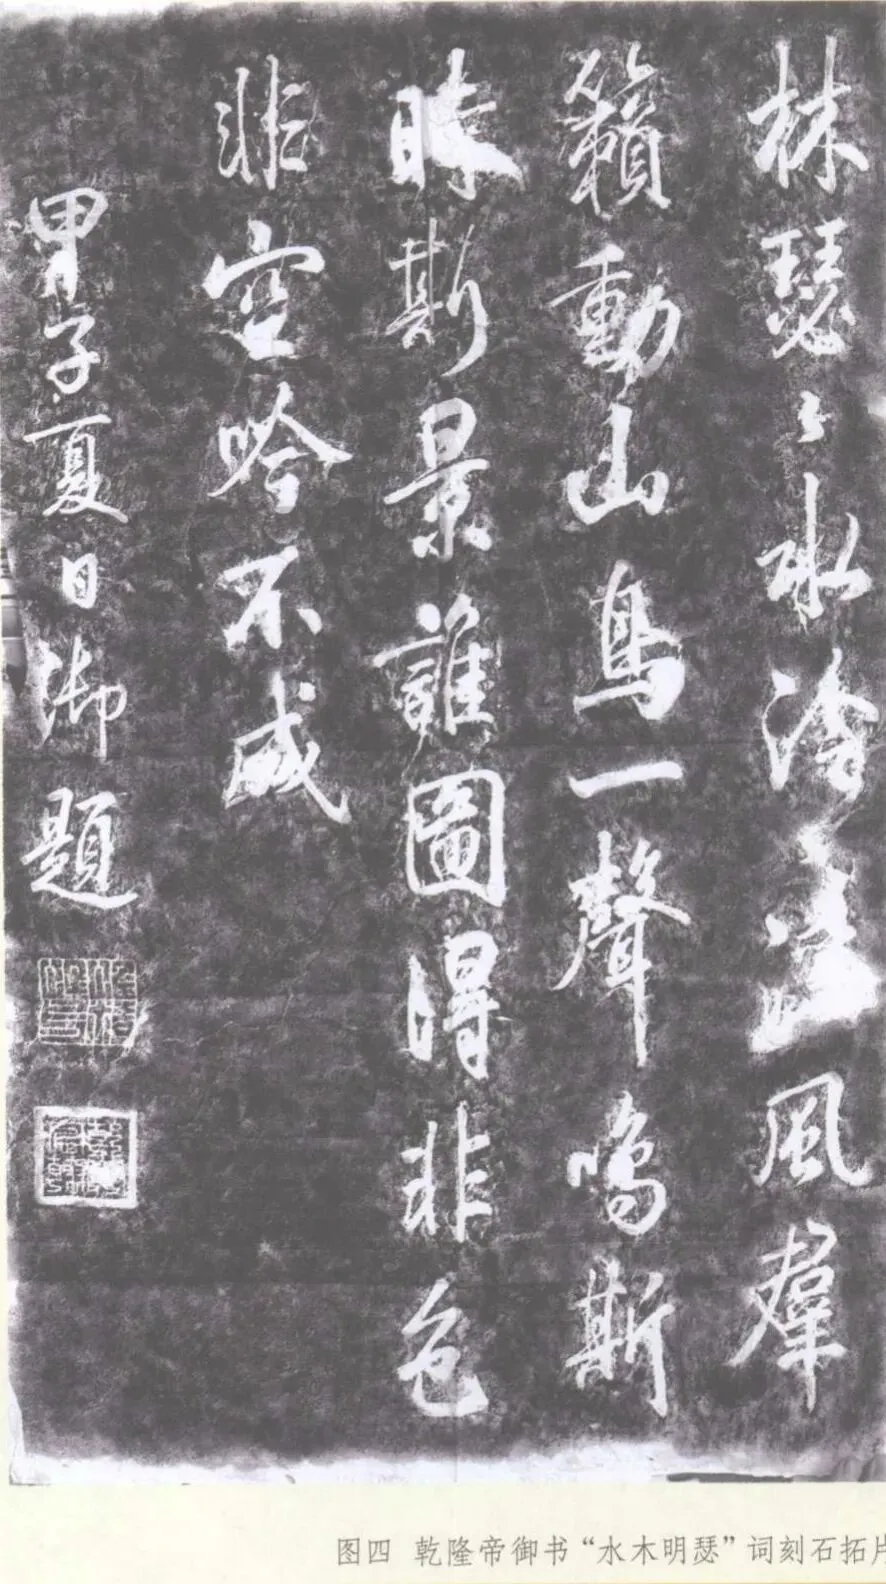 林瑟〻水泠〻溪風羣
籟動山鳥一聲鳴斯
時斯景誰圖得非色
非空吟不成
甲子夏日御題
图四 乾隆帝御书“水木明瑟”词刻石拓片